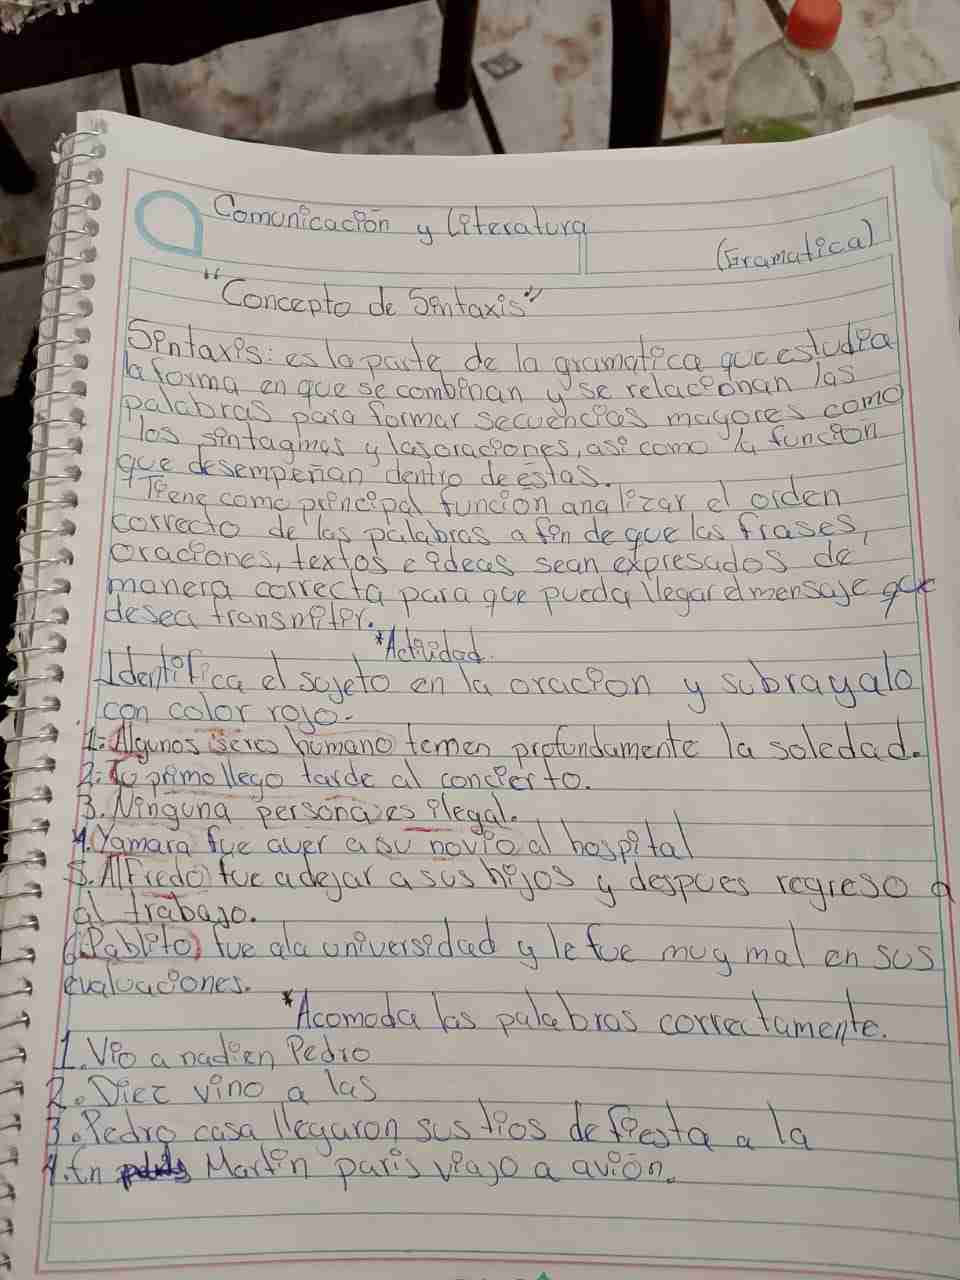 Comunicación y literatura
(Gramatica)
"Concepto de Sintaxis"
Sintaxis: es la parte de la gramatica que estudia
la forma en que se combinan y se relacionan las
palabras para formar secuencias mayores como
los sintagmas y las oraciones, asi como la función
que desempeñan dentro de estas.
Tiene como principal función analizar el orden
correcto de las palabras a fin de que las frases,
oraciones, textos e ideas sean expresados de
manera correcta para que pueda llegar el mensaje que
desea transmitir.
*Actividad.
Identifica el sujeto en la oracion y subrayalo
con color rojo.
1. Algunos seres humano temen profundamente la soledad.
2. Tu primo llego tarde al concierto.
3. Ninguna persona es ilegal.
4. Yamara fue aver a su novio al hospital
5. Alfredo fue a dejar a sus hijos y despues regreso a
al trabajo.
6 Pablito, fue ala universidad y le fue muy mal en sus
evaluaciones.
*Acomoda las palabras correctamente.
1. Vio a nadien Pedro
2. Diez vino a las
3. Pedro casa llegaron sus tios de fiesta a la
4. En Martin paris viajo a avión.